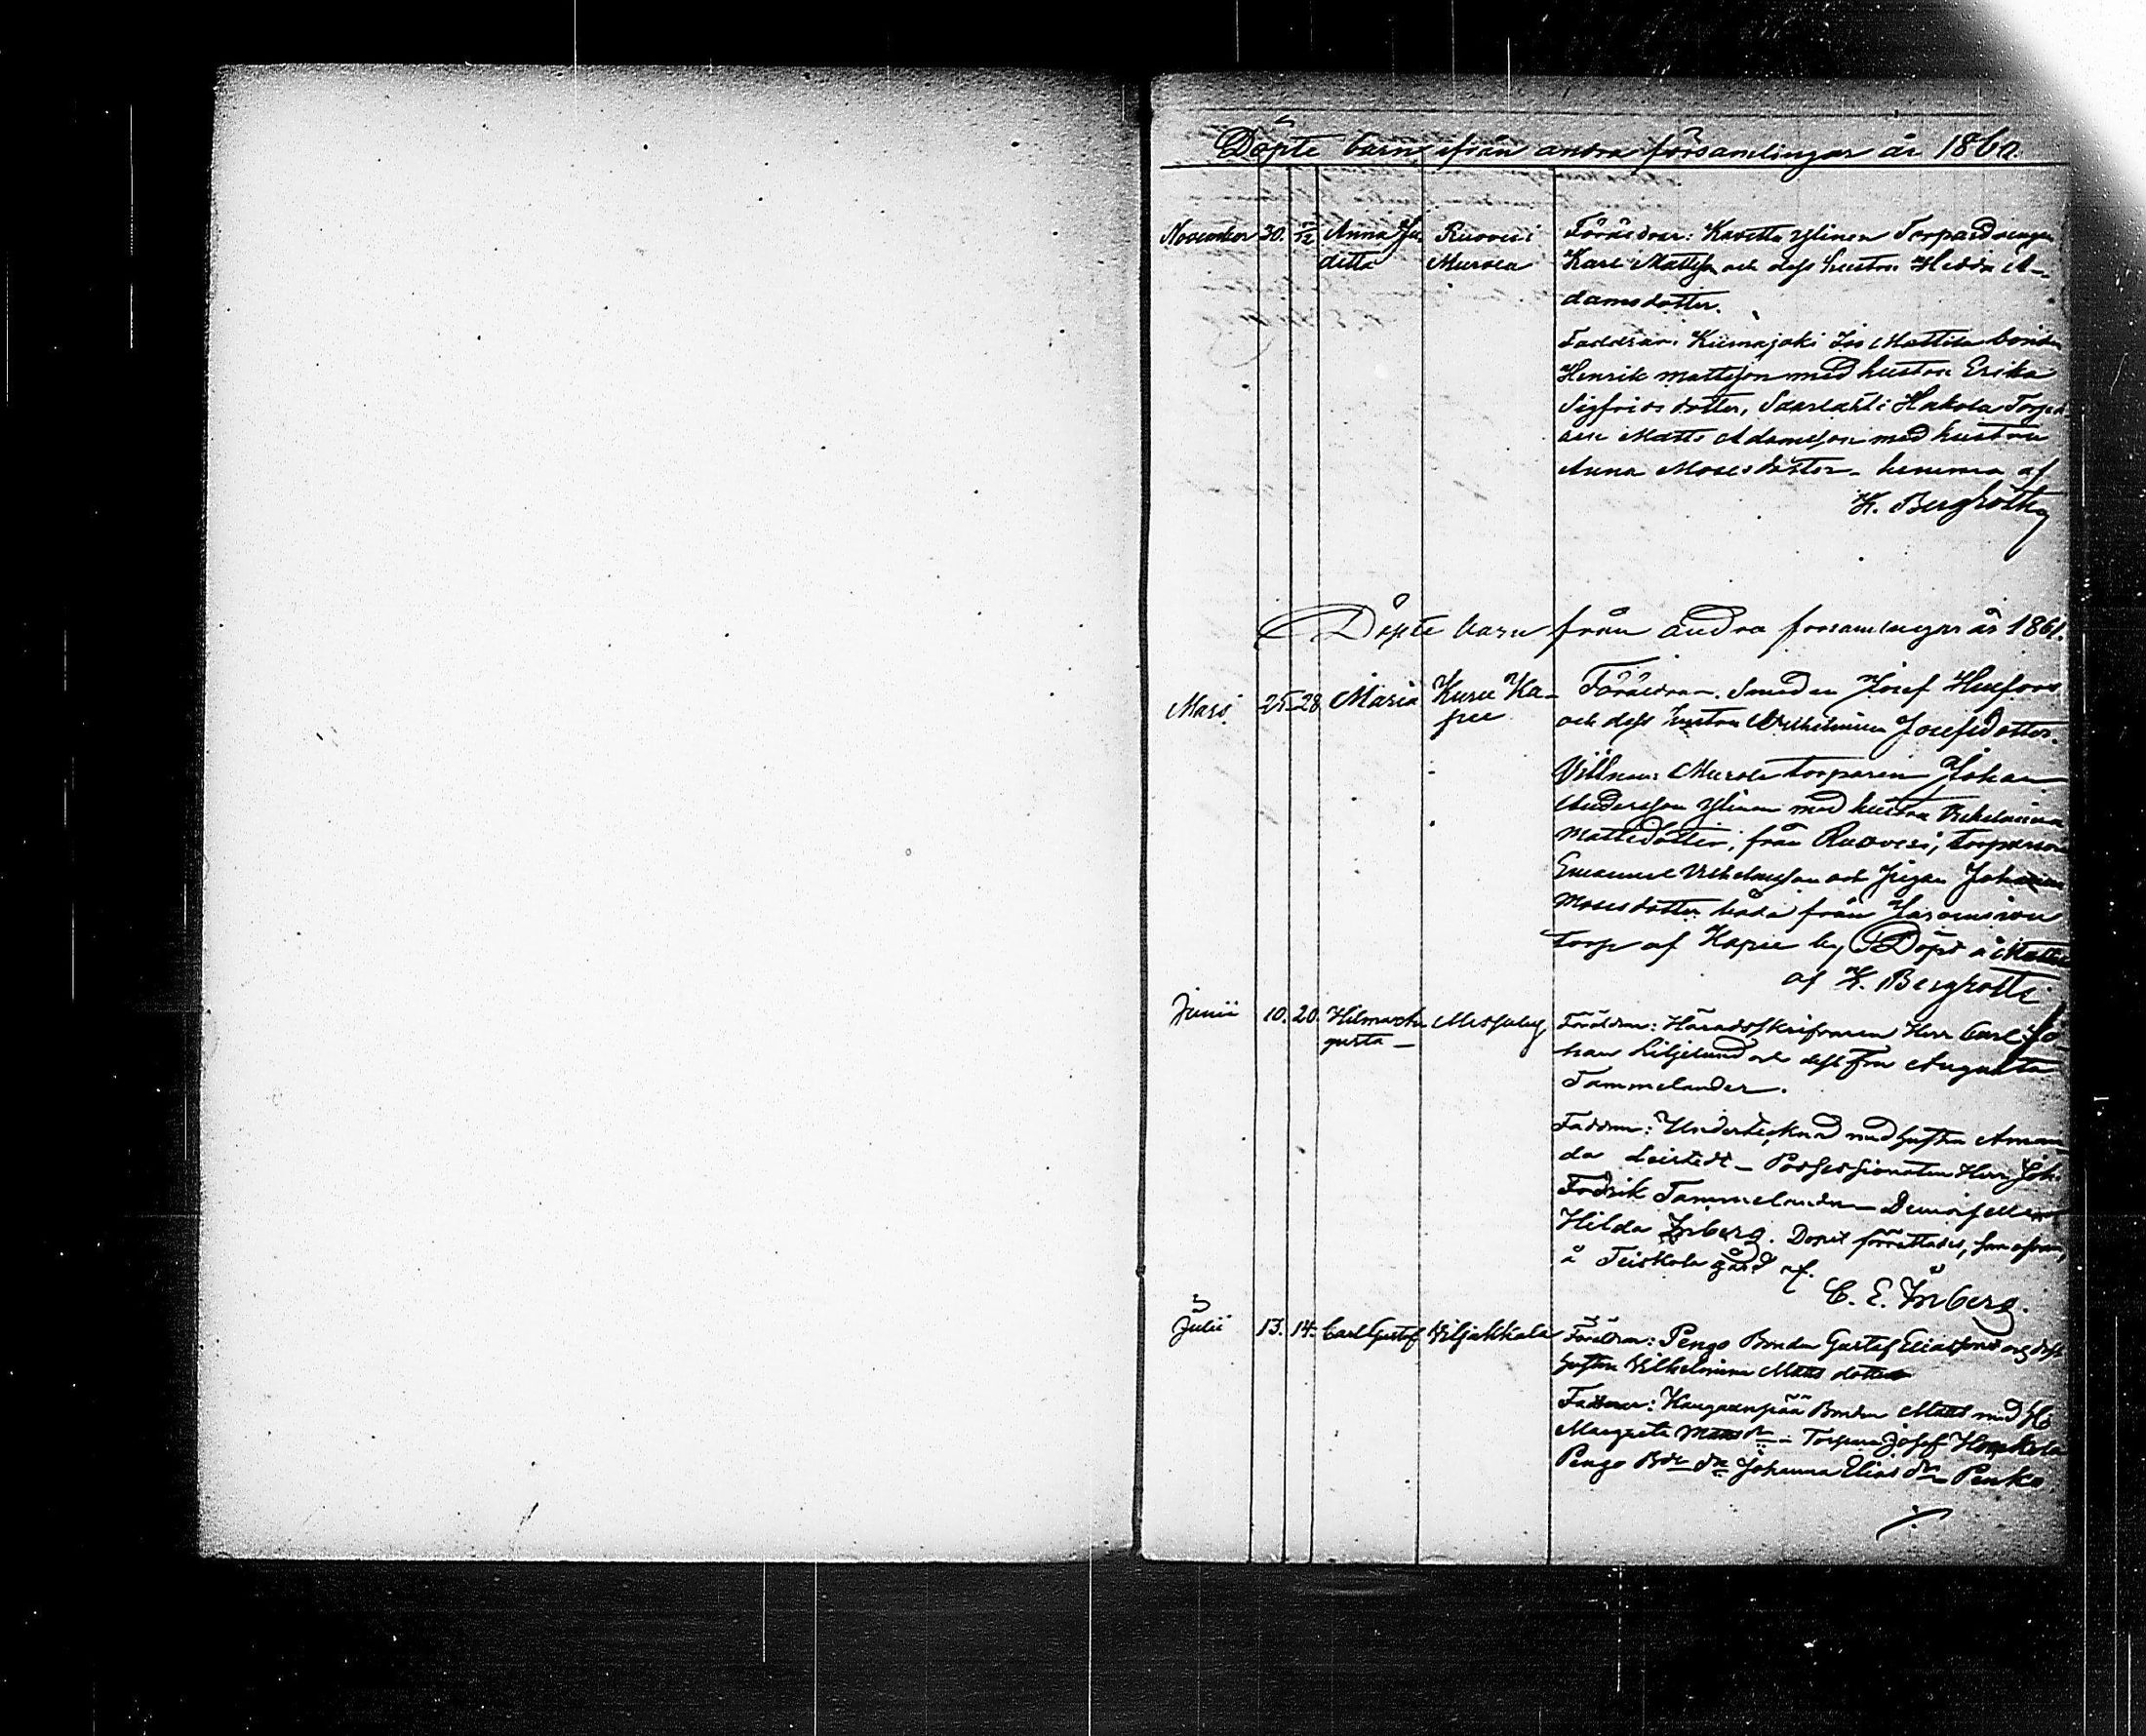 Döpte barn från andra församlingar år 1860.
November 30. 12 Anna Ju- Ruovesi Föräldrar: Kavettu Ylinen Torpardrengen
ditta Murole Karl Mattsson och dess hustru Hedda A-
damsdotter.
Faddrar: Kiimajoki Iso Mattila bonden
Henrik Mattsson med hustru Erika
Sigfridsdotter, Saarlahti Hakola Torpa-
ren Matts Adamsson med hustru
Anna Mosesdotter - hemma af
K. Bergroth
Döpte barn från andra församlingar år 1861.
Mars 25 28 Maria Kuru Ka- Föräldrar. Smeden Josef
pee och dess hustru Wilhelmina Josefsdotter.
Vittnen: Murole torparen Johan
Andersson Ylinen med hustru Vilhelmina
Mattsdotter, från Ruovesi, torparen
Emanuel Vilhelmsson och pigan Johanna
Mosesdotter båda från
torp af Kapee by Döpt å
af K. Bergroth
Junii 10. 20. Hilma Au- Messuby Föräldrar: Häradsskrifvaren Herr Carl Jo-
gusta - han Liljelund och dess Fru Augusta
Tammelander.
Faddrar: Undertecknad med hustru Aman-
da Leistedt - Possessionaten Herr Joh.
Fredrik Tammelander - Demoiselle
Hilda Inberg. Dopet förrättades,
å Teiskola gård af.
C. E. Inberg.
Julii 13. 14. Carl Gustaf Viljakkala Föräldrar: Pengo Bonden Gustaf Eliasson och dess
hustru Vilhelmina Matts dotter
Faddrar: Kangaanpää Bonden Matts med H:o
Margreta Matts dr - Torparen Josef
Pengo Bde dr Johanna Elias dr Penko.